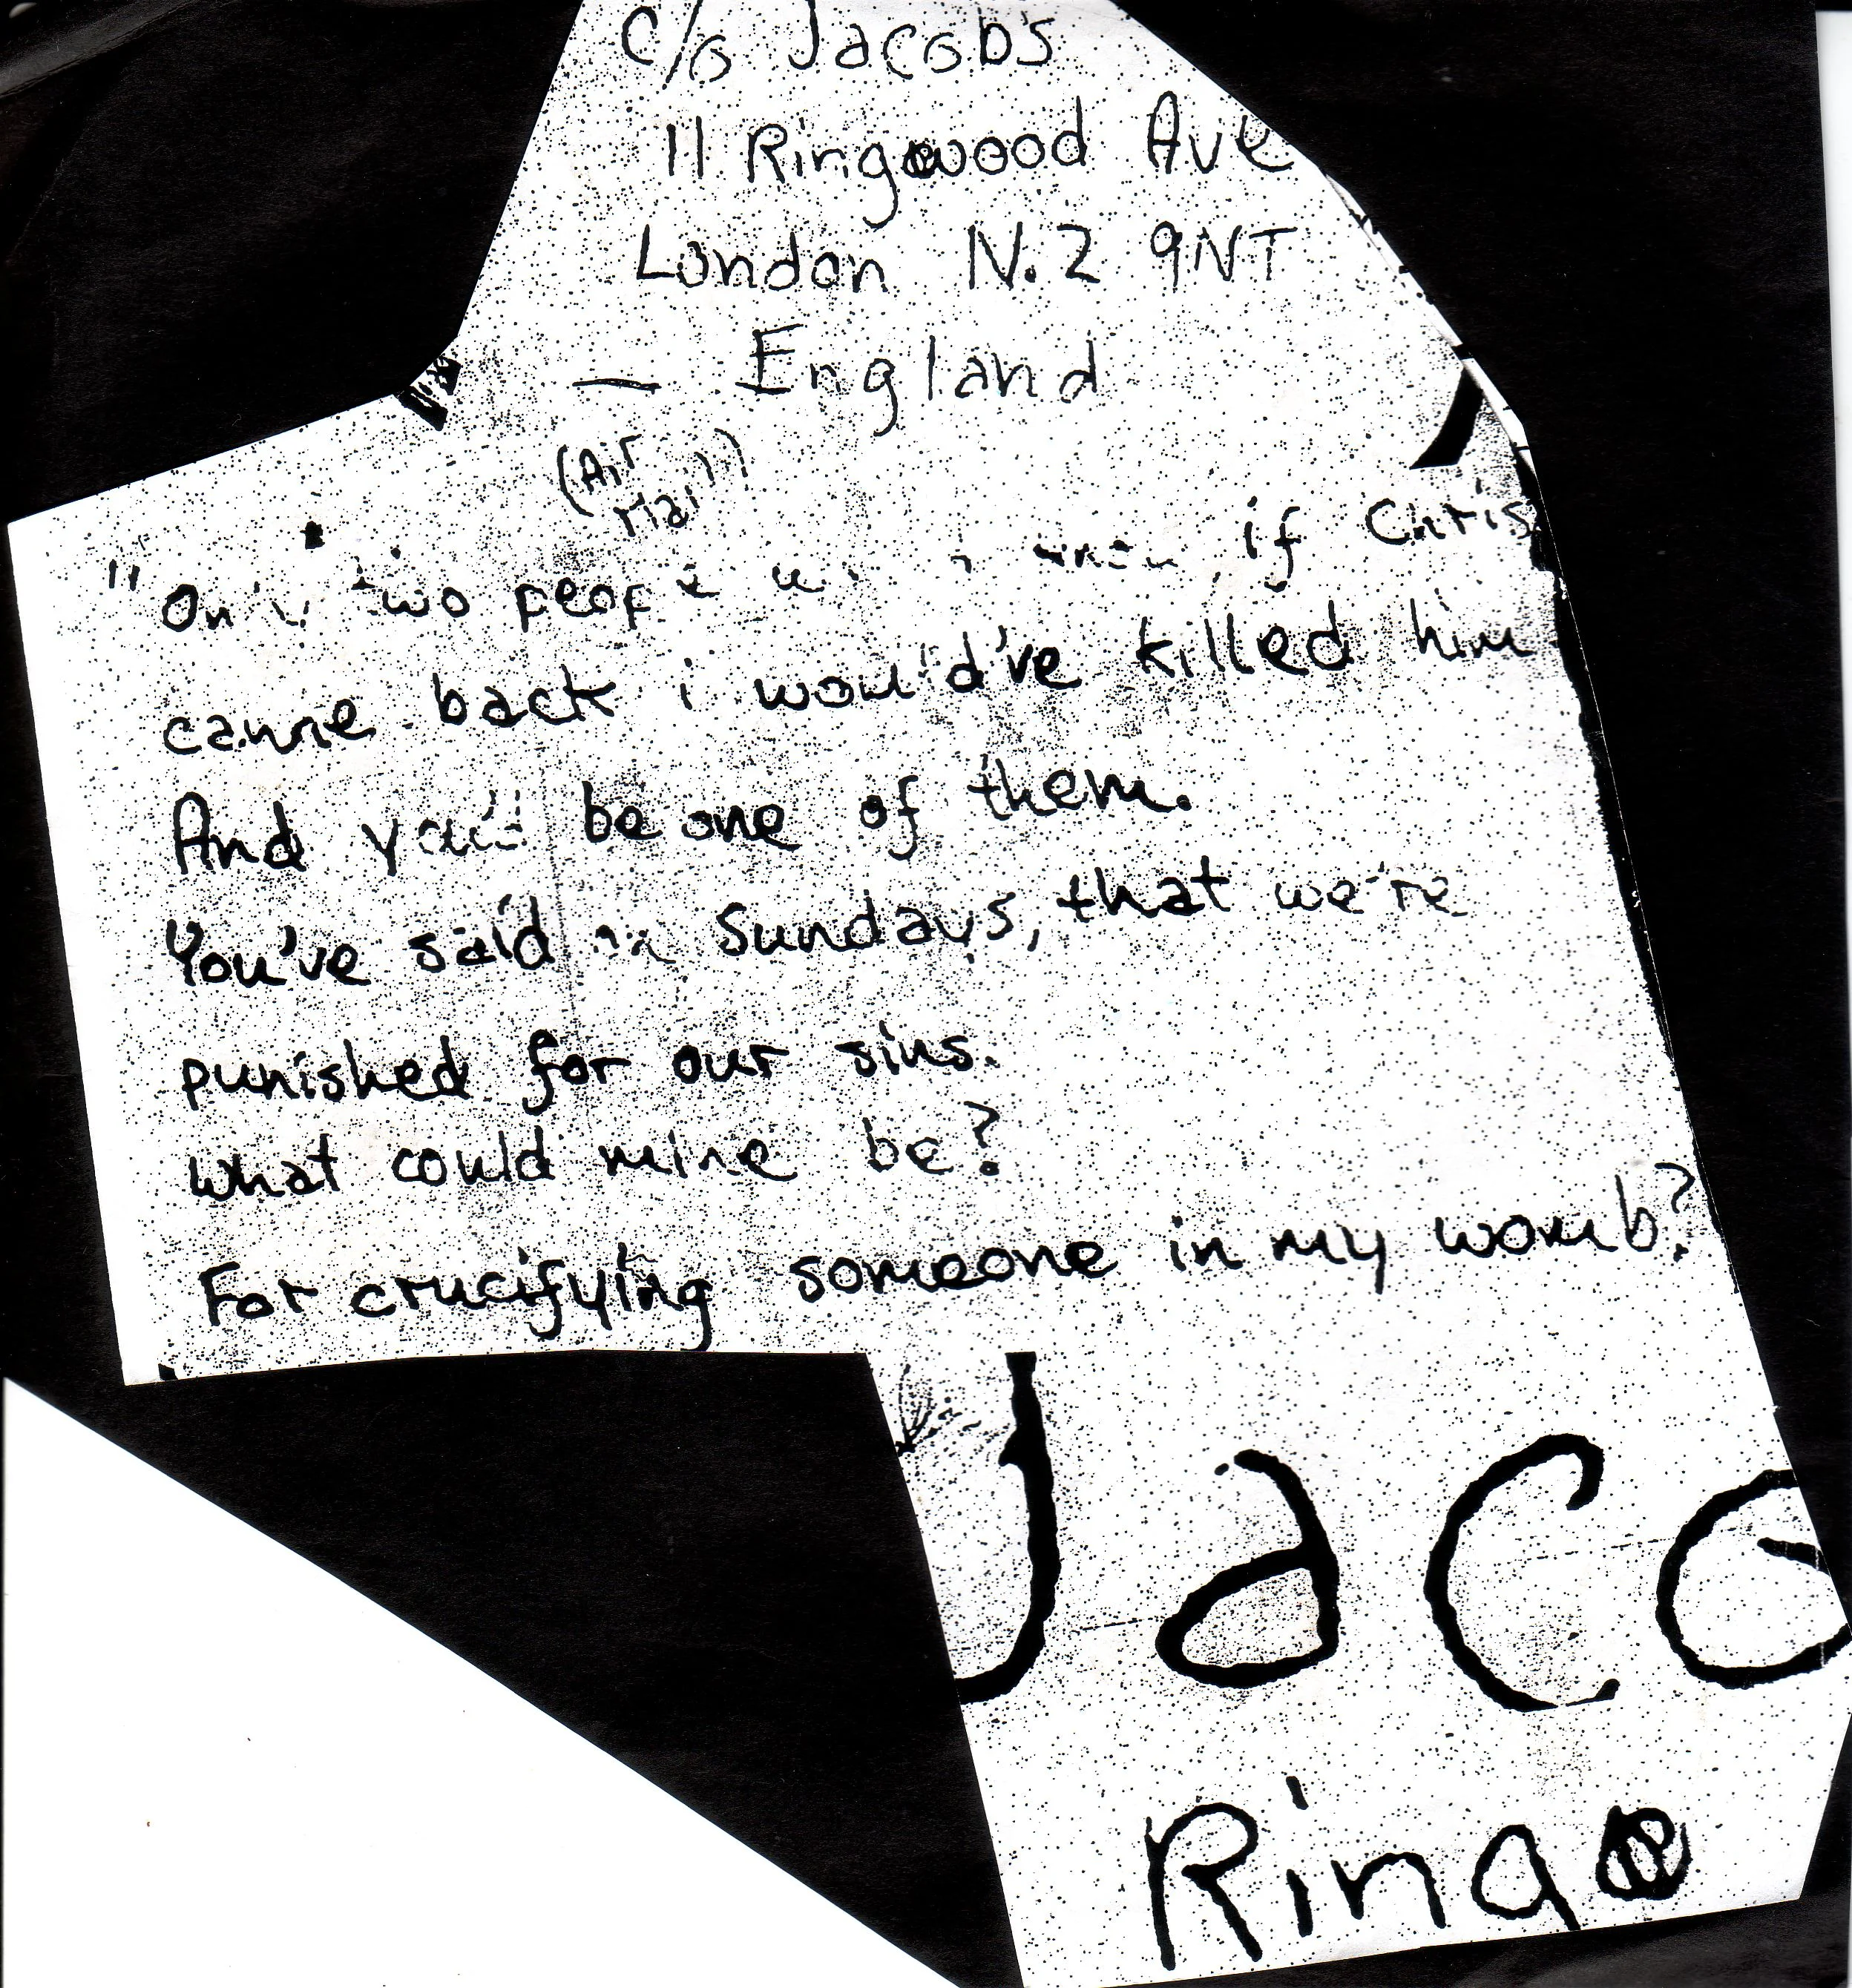 c/o Jacobs
11 Ringwood Ave
London N.2 9NT
— England
(Air
Mail)
"Only two people would know, if Chris
came back i would've killed him
And you'd be one of them.
You've said on Sundays, that we're
punished for our sins.
what could mine be?
For crucifying someone in my womb?
Jaco
Ring